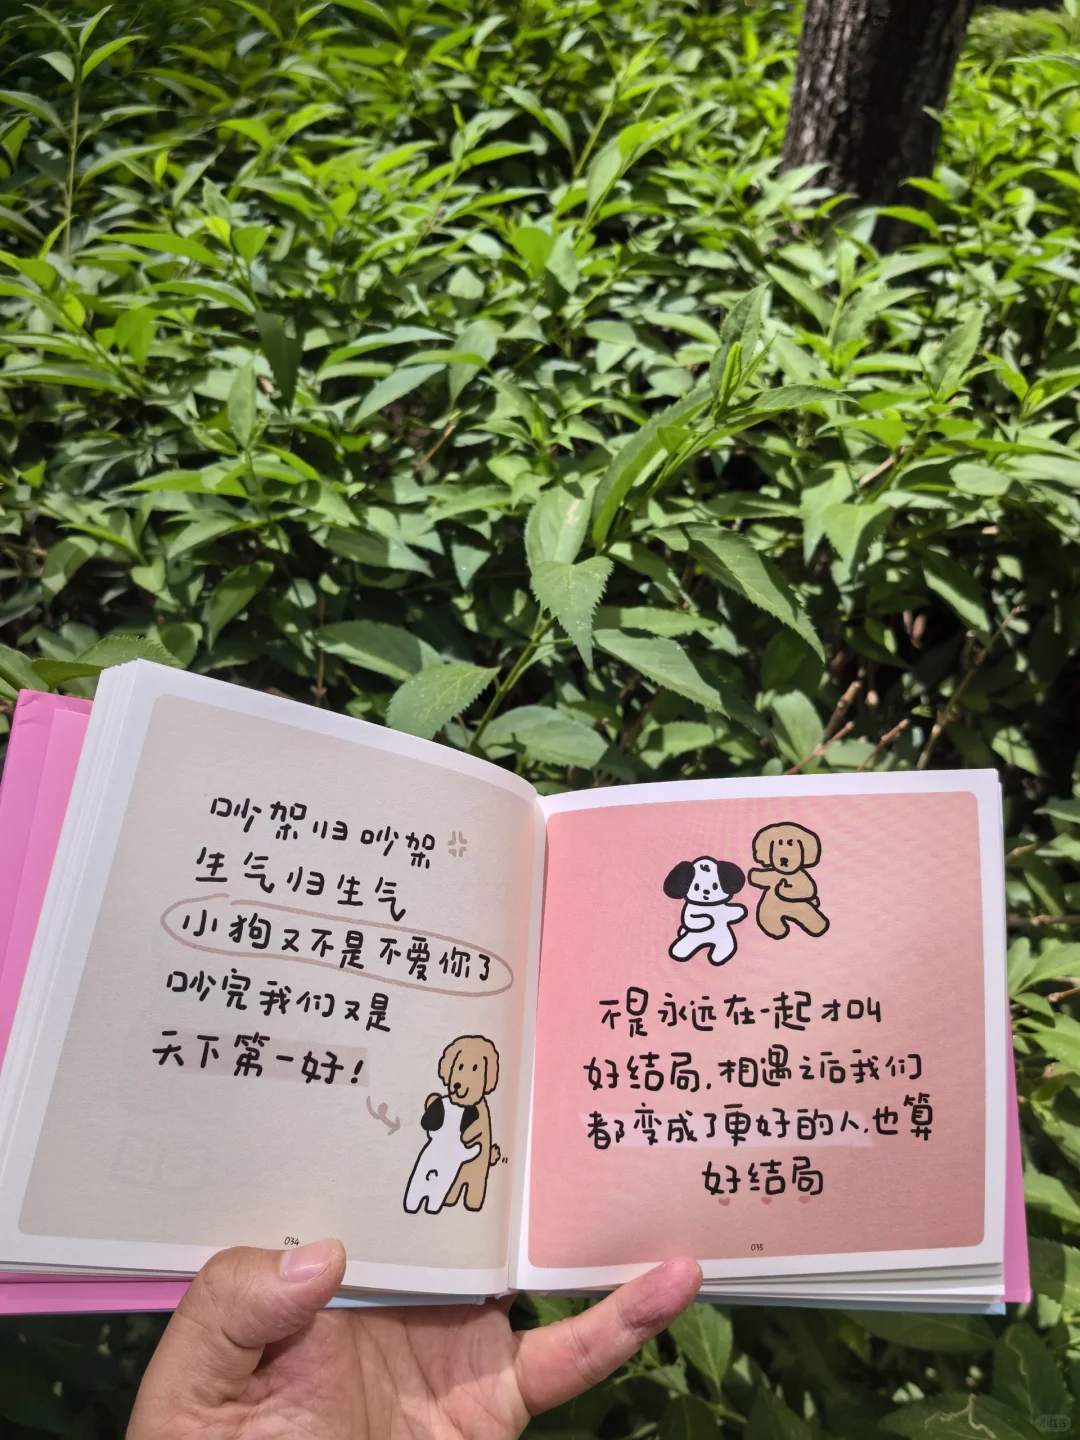 吵架归吵架
生气归生气
小狗又不是不爱你了
吵完我们又是
天下第一好！
034
不是永远在一起才叫
好结局,相遇之后我们
都变成了更好的人,也算
好结局
035
小红书